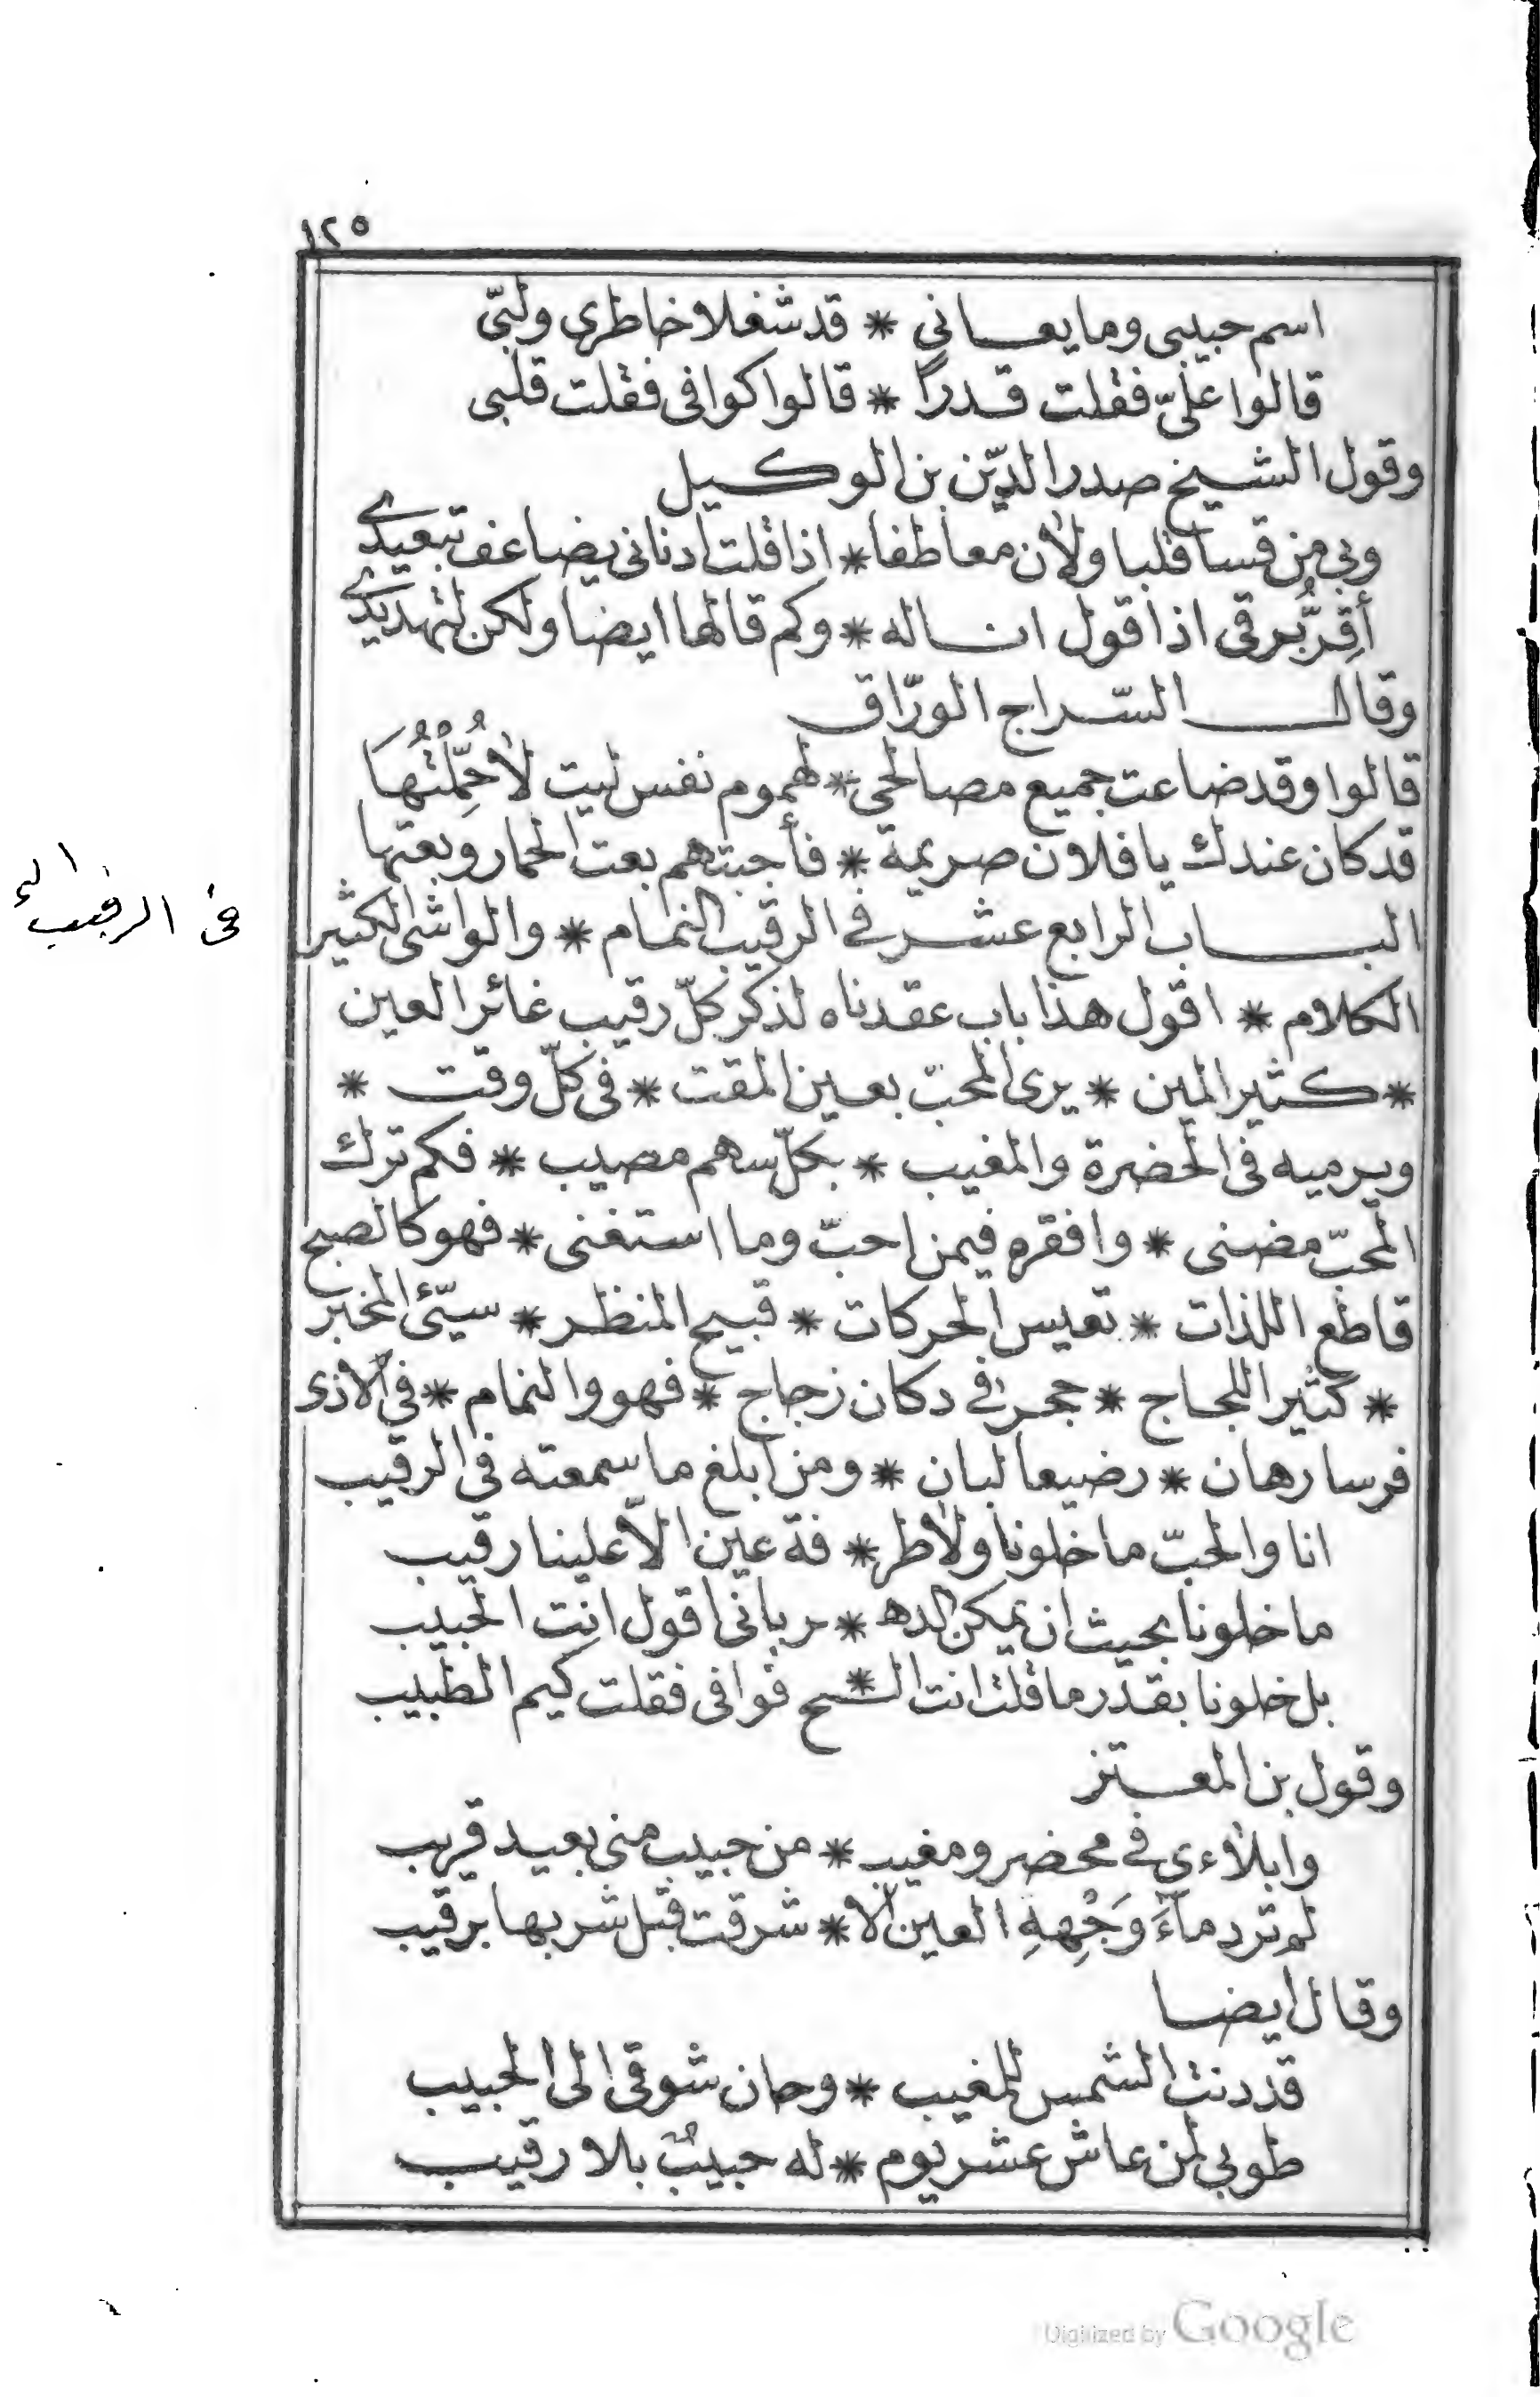 ١٢٥
اسم حبيبى وما يعـــانى * قد شغلا خاطرى ولبّى
قالوا علىّ فقلت قدراً * قالوا كوافى فقلت قلبى
وقول الشيخ صدر الدّين بن الوكيل
وبى من قسا قلبا ولان معاطفا * اذا قلت ادنانى يضاعف تبعيدى
أقِرُّ برقى اذ اقول انا له * وكم قالها ايضا ولكن لتهديدى
وقال السّراج الورّاق
قالوا وقد ضاعت جميع مصالحى * لهموم نفس ليت لا حُمِّلْتُهَا
قد كان عندك يا فلان صريمة * فأجبتهم بعت الحمار وبعتها
البــاب الرابع عشر فى الرقيب النمام * والواشى الكثير
فى الرقيب
الكلام * اقول هذا باب عقدناه لذكر كلّ رقيب غائر العين
* كثير المين * يرى المحبّ بعين المقت * فى كلّ وقت *
ويرميه فى الحضرة والمغيب * بكلّ سهم مصيب * فكم ترك
المحبّ مضنى * وافقره فيمن احبّ وما استغنى * فهو كالصبح
قاطع اللذات * تعيس الحركات * قبيح المنظر * سيّئ المخبر
* كثير اللجاج * حجر فى دكان زجاج * فهو والنمام * فى الاذى
فرسا رهان * رضيعا لبان * ومن ابلغ ما سمعته فى الرقيب
انا والحبّ ما خلونا ولا طر * فة عين الّا علينا رقيب
ما خلونا بحيث ان يمكن الده * ر بانى اقول انت الحبيب
بل خلونا بقدر ما قلت انت الـ * ـح فوافى فقلت كيم الطبيب
وقول بن المعــتز
وابلاءى فى محضر ومغيب * من حبيب منى بعيد قريب
لم ترد ماءَ وَجْهِهِ العين الا * شرقت قبل شربها برقيب
وقال ايضــا
قد دنت الشمس للمغيب * وحان شوقى الى الحبيب
طوبى لمن عاش عشر يوم * له حبيبٌ بلا رقيب
Digitized by Google